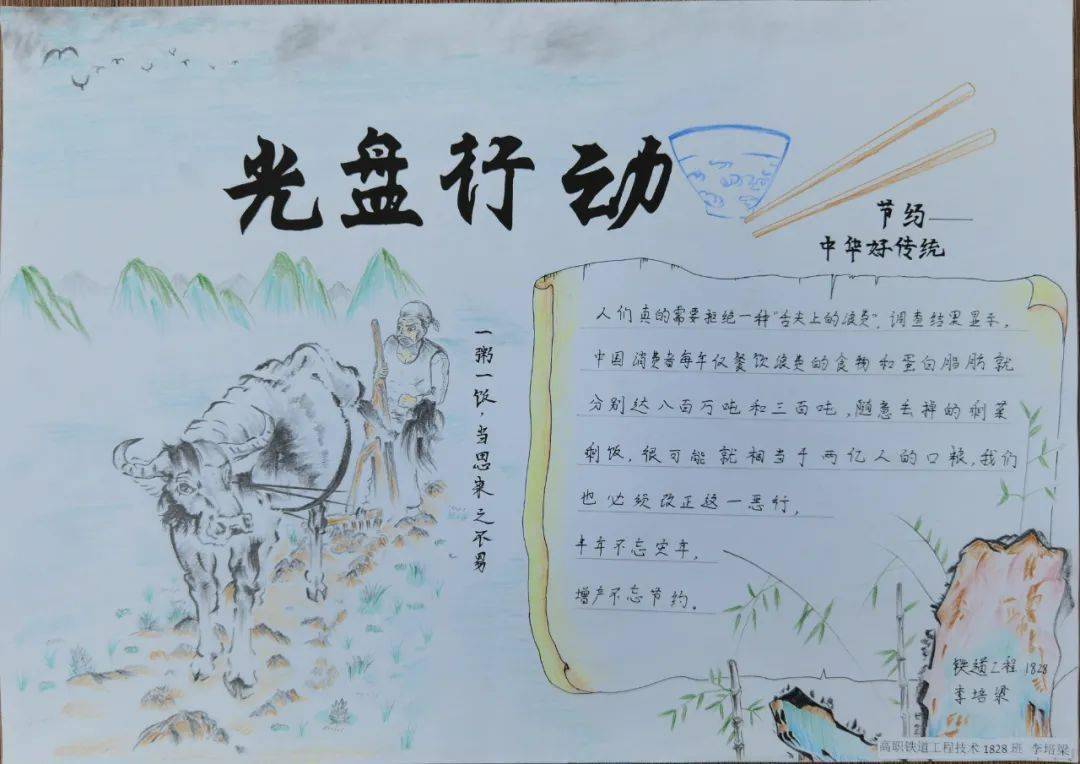 光盘行动
节约——
中华好传统
一粥一饭，当思来之不易
人们真的需要拒绝一种“舌尖上的浪费”，调查结果显示，
中国消费者每年仅餐饮浪费的食物和蛋白脂肪就
分别达八百万吨和三百吨，随意丢掉的剩菜
剩饭，很可能就相当于两亿人的口粮，我们
也必须改正这一恶行，
丰年不忘灾年，
增产不忘节约。
铁道工程 1828
李培梁
高职铁道工程技术1828班 李培梁